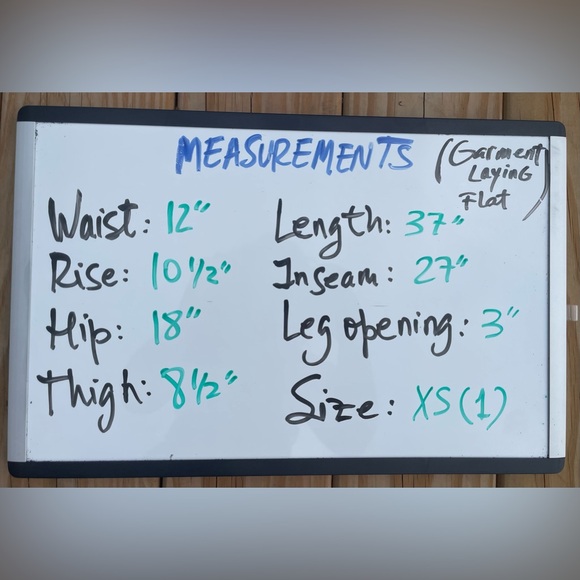 MEASUREMENTS (Garment
Laying
Flat)
Waist: 12"
Rise: 10 1/2"
Hip: 18"
Thigh: 8 1/2"
Length: 37"
Inseam: 27"
Leg opening: 3"
Size: XS(1)